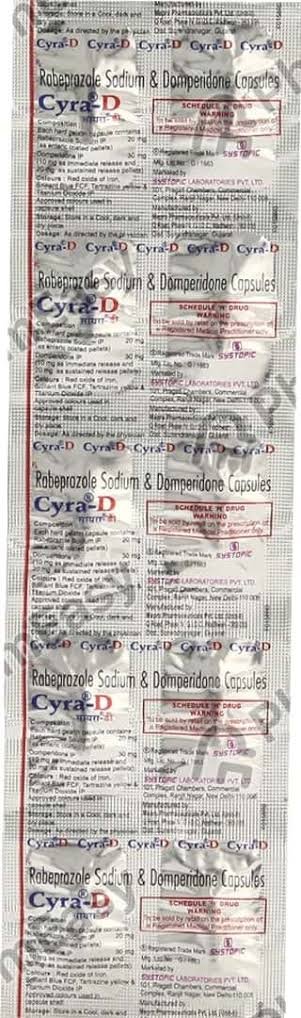 Storage: Store in a Cool, dark and
dry place.
Dosage: As directed by the physician
Cyra-D Cyra-D Cyra-D Cyra-D Cyra-D
Rabeprazole Sodium & Domperidone Capsules
Cyra®-D
सायरा-डी
Composition :
Each hard gelatin capsule contains
Rabeprazole Sodium IP 20 mg
(as enteric coated pellets)
Domperidone IP 30 mg
(10 mg as immediate release and
20 mg as sustained release pellets)
Colours : Red oxide of Iron,
Brilliant Blue FCF, Tartrazine yellow &
Titanium Dioxide IP
Approved colours used in
capsule shell
Storage: Store in a Cool, dark and
dry place.
Dosage: As directed by the physician
SCHEDULE 'H' DRUG
WARNING
To be sold by retail on the prescription of
a Registered Medical Practitioner only.
®Registered Trade Mark SYSTOPIC
Mfg. Lic. No.: G/1663
Marketed by
SYSTOPIC LABORATORIES PVT. LTD.
101, Pragati Chambers, Commercial
Complex, Ranjit Nagar, New Delhi-110 008
Manufactured by
Cyra-D Cyra-D Cyra-D Cyra-D Cyra-D
Rabeprazole Sodium & Domperidone Capsules
Cyra®-D
सायरा-डी
Each hard gelatin capsule contains
Rabeprazole Sodium IP 20 mg
(as enteric coated pellets)
Domperidone IP 30 mg
(10 mg as immediate release and
20 mg as sustained release pellets)
Colours : Red oxide of Iron,
Brilliant Blue FCF, Tartrazine yellow &
Titanium Dioxide IP
Approved colours used in
capsule shell
Dosage: As directed by the physician
SCHEDULE 'H' DRUG
WARNING
To be sold by retail on the prescription of
a Registered Medical Practitioner only.
®Registered Trade Mark SYSTOPIC
Mfg. Lic. No.: G/1663
Marketed by
SYSTOPIC LABORATORIES PVT. LTD.
101, Pragati Chambers, Commercial
Complex, Ranjit Nagar, New Delhi-110 008
Manufactured by
Cyra-D Cyra-D Cyra-D Cyra-D Cyra-D
Rabeprazole Sodium & Domperidone Capsules
Cyra®-D
सायरा-डी
Composition :
Each hard gelatin capsule contains
Rabeprazole Sodium IP 20 mg
(as enteric coated pellets)
Domperidone IP 30 mg
(10 mg as immediate release and
20 mg as sustained release pellets)
Colours : Red oxide of Iron,
Brilliant Blue FCF, Tartrazine yellow &
Titanium Dioxide IP
Approved colours used in
capsule shell
Dosage: As directed by the physician
SCHEDULE 'H' DRUG
WARNING
To be sold by retail on the prescription of
a Registered Medical Practitioner only.
®Registered Trade Mark SYSTOPIC
Mfg. Lic. No.: G/1663
Marketed by
SYSTOPIC LABORATORIES PVT. LTD.
101, Pragati Chambers, Commercial
Complex, Ranjit Nagar, New Delhi-110 008
Manufactured by
Cyra-D Cyra-D Cyra-D Cyra-D Cyra-D
Rabeprazole Sodium & Domperidone Capsules
Cyra®-D
सायरा-डी
Composition :
Each hard gelatin capsule contains
Rabeprazole Sodium IP 20 mg
(as enteric coated pellets)
Domperidone IP 30 mg
(10 mg as immediate release and
20 mg as sustained release pellets)
Colours : Red oxide of Iron,
Brilliant Blue FCF, Tartrazine yellow &
Titanium Dioxide IP
Approved colours used in
capsule shell
Storage: Store in a Cool, dark and
SCHEDULE 'H' DRUG
WARNING
To be sold by retail on the prescription of
a Registered Medical Practitioner only.
®Registered Trade Mark SYSTOPIC
Marketed by
SYSTOPIC LABORATORIES PVT. LTD.
101, Pragati Chambers, Commercial
Complex, Ranjit Nagar, New Delhi-110 008
Manufactured by
Cyra-D Cyra-D Cyra-D Cyra-D Cyra-D
Rabeprazole Sodium & Domperidone Capsules
Cyra®-D
सायरा-डी
Composition :
Each hard gelatin capsule contains
Rabeprazole Sodium IP 20 mg
Domperidone IP 30 mg
(10 mg as immediate release and
20 mg as sustained release pellets)
Colours : Red oxide of Iron,
Brilliant Blue FCF, Tartrazine yellow &
Titanium Dioxide IP
Approved colours used in
capsule shell
Storage: Store in a Cool, dark and
SCHEDULE 'H' DRUG
WARNING
To be sold by retail on the prescription of
a Registered Medical Practitioner only.
®Registered Trade Mark SYSTOPIC
Mfg. Lic. No.: G/1663
Marketed by
SYSTOPIC LABORATORIES PVT. LTD.
101, Pragati Chambers, Commercial
Complex, Ranjit Nagar, New Delhi-110 008
Manufactured by